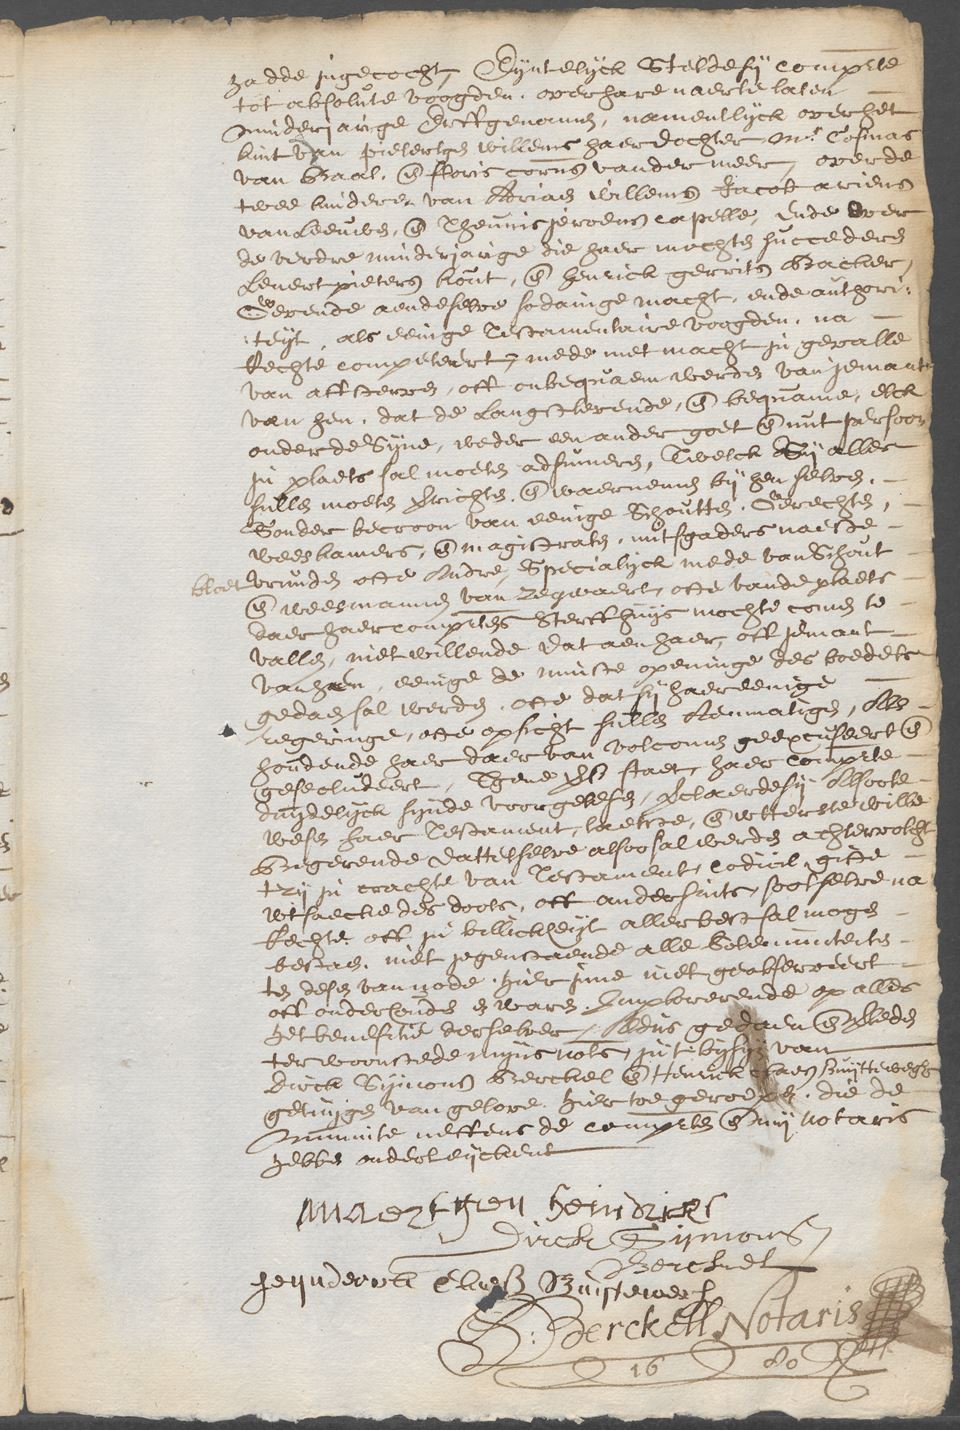 hadde ingecocht, Eyntelyck stelde sij comp.te
tot absolute voogden, over hare naer te laten
minderjarige erffgenamen, namentlyck over het
kint van pietertgen willems haer dochter, Mr. Cosmas
van Baal, en floris corns vander meer, over de
twee kinderen van Ariaen willems Jacob ariens
van Leeuwen, en Theunis jeroens capelle, ende over
de verdre minderjarige die haer mochten succederen
Leenert pieters hout, en henrick gerrits Backer,
Gevende aen deselve sodanige macht, ende authori-
:teyt, als eenige Testamentaire voogden, na
Rechte competeert, mede met macht in gevalle
van aflijven, oft onbequaem werden van jemant
van hen, dat de Langstlevende, en bequame, elck
onder de syne, weder een ander goet en nut persoon
in plaets sal moeten adsumeren, Twelck sij alles
sullen moeten verrichten, en waernemen bij hen selven,
Sonder becroon van eenige Schoutten, Gerechten,
weeskamers, en magistraten, mitsgaders naeste
bloet vrunden ofte Andre, Specialijck mede van Schout
en weesmannen van Zegwaert, ofte vande plaets
daer haer comp.tes Sterffhuijs mochte comen te
vallen, niet willende dat aen haer, oft jemant
van haer, eenige de minste openinge des boedels
gedaen sal werden, ofte dat sij haer eenige
regeringe, ofte opsicht sullen Aenmatigen, Alle
houdende haer daer van volcomen geexcuseert en
gesecludeert, Tgene voorsz staet, haer comp.te
duydelyck synde voorgelesen, verclaerde sij Alsoo te
wesen haer Testament, laetste, en wtterste wille
Begerende dat tselve alsoo sal werden achtervolcht
tzij in crachte van Testament, codicil, gifte
wt saecke des doots, oft andersints, soo tselve na
Rechte oft in billickheyt allerbest sal mogen
bestaen, niet jegenstaende alle Solemniteiten
te desen van node, hier inne niet geobserveert
oft onderhouden en waren, Imploreerende op alles
het benefitie derselver, Aldus gedaen en verleden
ter woonstede mijns nots, in't bijsyn van
Dirck Symons Berckel en Henrick claes Buijtteweghe
getuijgen van gelove, hier toe geroepen, die de
Minuite neffens de comp.te en mij notaris
hebben onderteijckent
Maertgen heindricx
Dirck Symons
Berckel
heynderick claesz Buijtewech
Berckell Notaris
1680